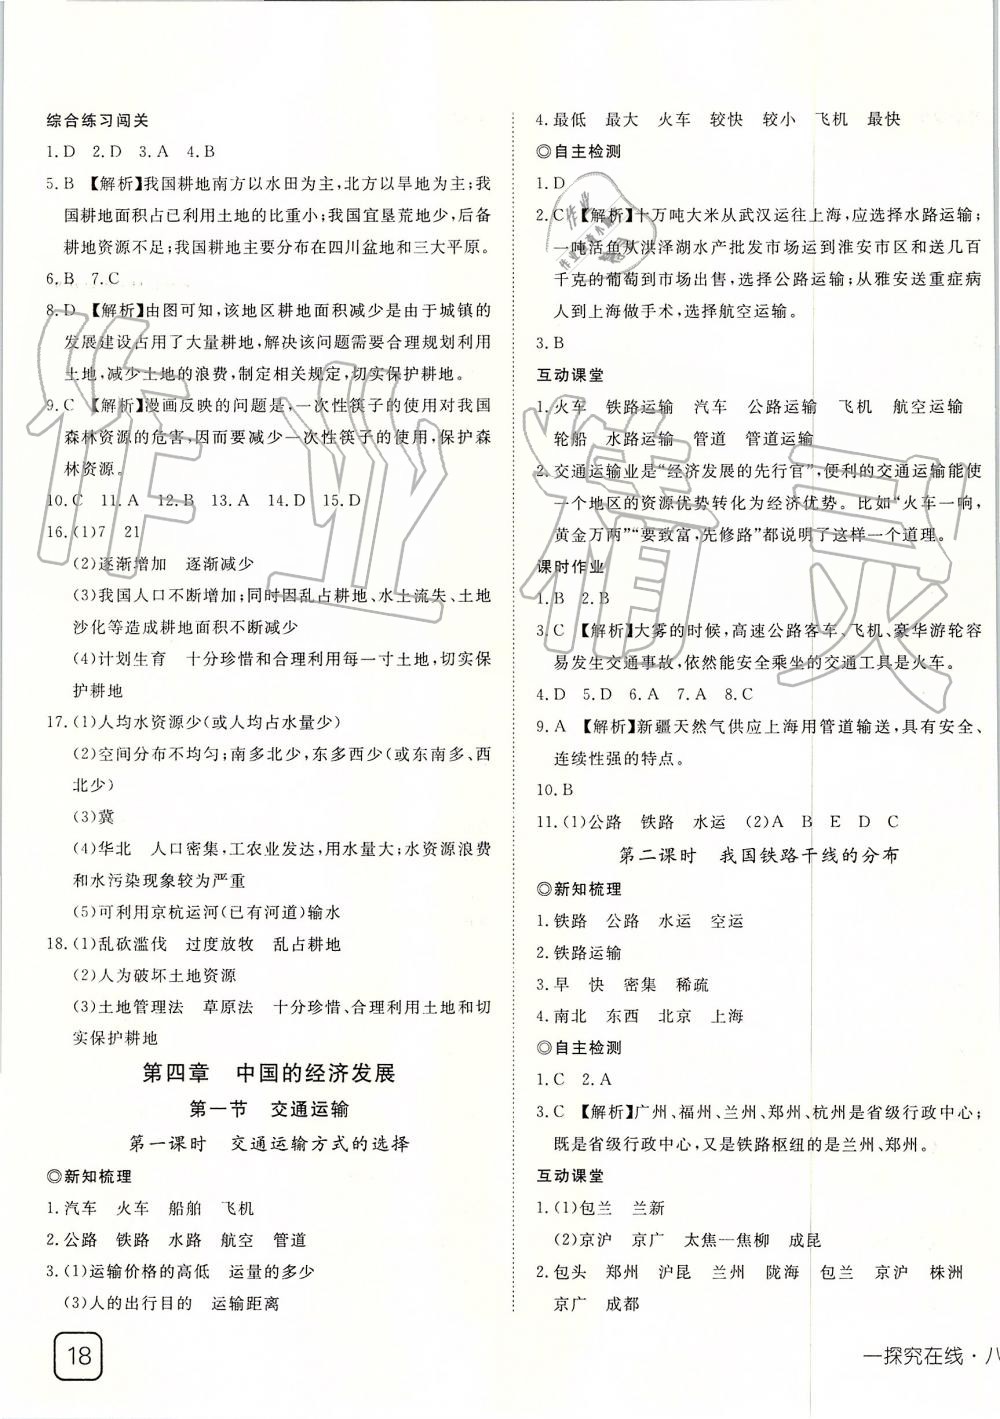 综合练习闯关
1.D 2.D 3.A 4.B
5.B 【解析】我国耕地南方以水田为主,北方以旱地为主;我
国耕地面积占已利用土地的比重小;我国宜垦荒地少,后备
耕地资源不足;我国耕地主要分布在四川盆地和三大平原。
6.B 7.C
8.D 【解析】由图可知,该地区耕地面积减少是由于城镇的
发展建设占用了大量耕地,解决该问题需要合理规划利用
土地,减少土地的浪费,制定相关规定,切实保护耕地。
9.C 【解析】漫画反映的问题是,一次性筷子的使用对我国
森林资源的危害,因而要减少一次性筷子的使用,保护森
林资源。
10.C 11.A 12.B 13.A 14.D 15.D
16.(1)7 21
(2)逐渐增加 逐渐减少
(3)我国人口不断增加;同时因乱占耕地、水土流失、土地
沙化等造成耕地面积不断减少
(4)计划生育 十分珍惜和合理利用每一寸土地,切实保
护耕地
17.(1)人均水资源少(或人均占水量少)
(2)空间分布不均匀;南多北少,东多西少(或东南多、西
北少)
(3)冀
(4)华北 人口密集,工农业发达,用水量大;水资源浪费
和水污染现象较为严重
(5)可利用京杭运河(已有河道)输水
18.(1)乱砍滥伐 过度放牧 乱占耕地
(2)人为破坏土地资源
(3)土地管理法 草原法 十分珍惜、合理利用土地和切
实保护耕地
第四章 中国的经济发展
第一节 交通运输
第一课时 交通运输方式的选择
◎新知梳理
1.汽车 火车 船舶 飞机
2.公路 铁路 水路 航空 管道
3.(1)运输价格的高低 运量的多少
(3)人的出行目的 运输距离
18
4.最低 最大 火车 较快 较小 飞机 最快
◎自主检测
1.D
2.C 【解析】十万吨大米从武汉运往上海,应选择水路运输;
一吨活鱼从洪泽湖水产批发市场运到淮安市区和送几百
千克的葡萄到市场出售,选择公路运输;从雅安送重症病
人到上海做手术,选择航空运输。
3.B
互动课堂
1.火车 铁路运输 汽车 公路运输 飞机 航空运输
轮船 水路运输 管道 管道运输
2.交通运输业是“经济发展的先行官”,便利的交通运输能使
一个地区的资源优势转化为经济优势。比如“火车一响,
黄金万两”“要致富,先修路”都说明了这样一个道理。
课时作业
1.B 2.B
3.C 【解析】大雾的时候,高速公路客车、飞机、豪华游轮容
易发生交通事故,依然能安全乘坐的交通工具是火车。
4.D 5.D 6.A 7.A 8.C
9.A 【解析】新疆天然气供应上海用管道输送,具有安全、
连续性强的特点。
10.B
11.(1)公路 铁路 水运 (2)A B E D C
第二课时 我国铁路干线的分布
◎新知梳理
1.铁路 公路 水运 空运
2.铁路运输
3.早 快 密集 稀疏
4.南北 东西 北京 上海
◎自主检测
1.C 2.A
3.C 【解析】广州、福州、兰州、郑州、杭州是省级行政中心;
既是省级行政中心,又是铁路枢纽的是兰州、郑州。
互动课堂
1.(1)包兰 兰新
(2)京沪 京广 太焦—焦柳 成昆
2.包头 郑州 沪昆 兰州 陇海 包兰 京沪 株洲
京广 成都
一探究在线·八
作业精灵